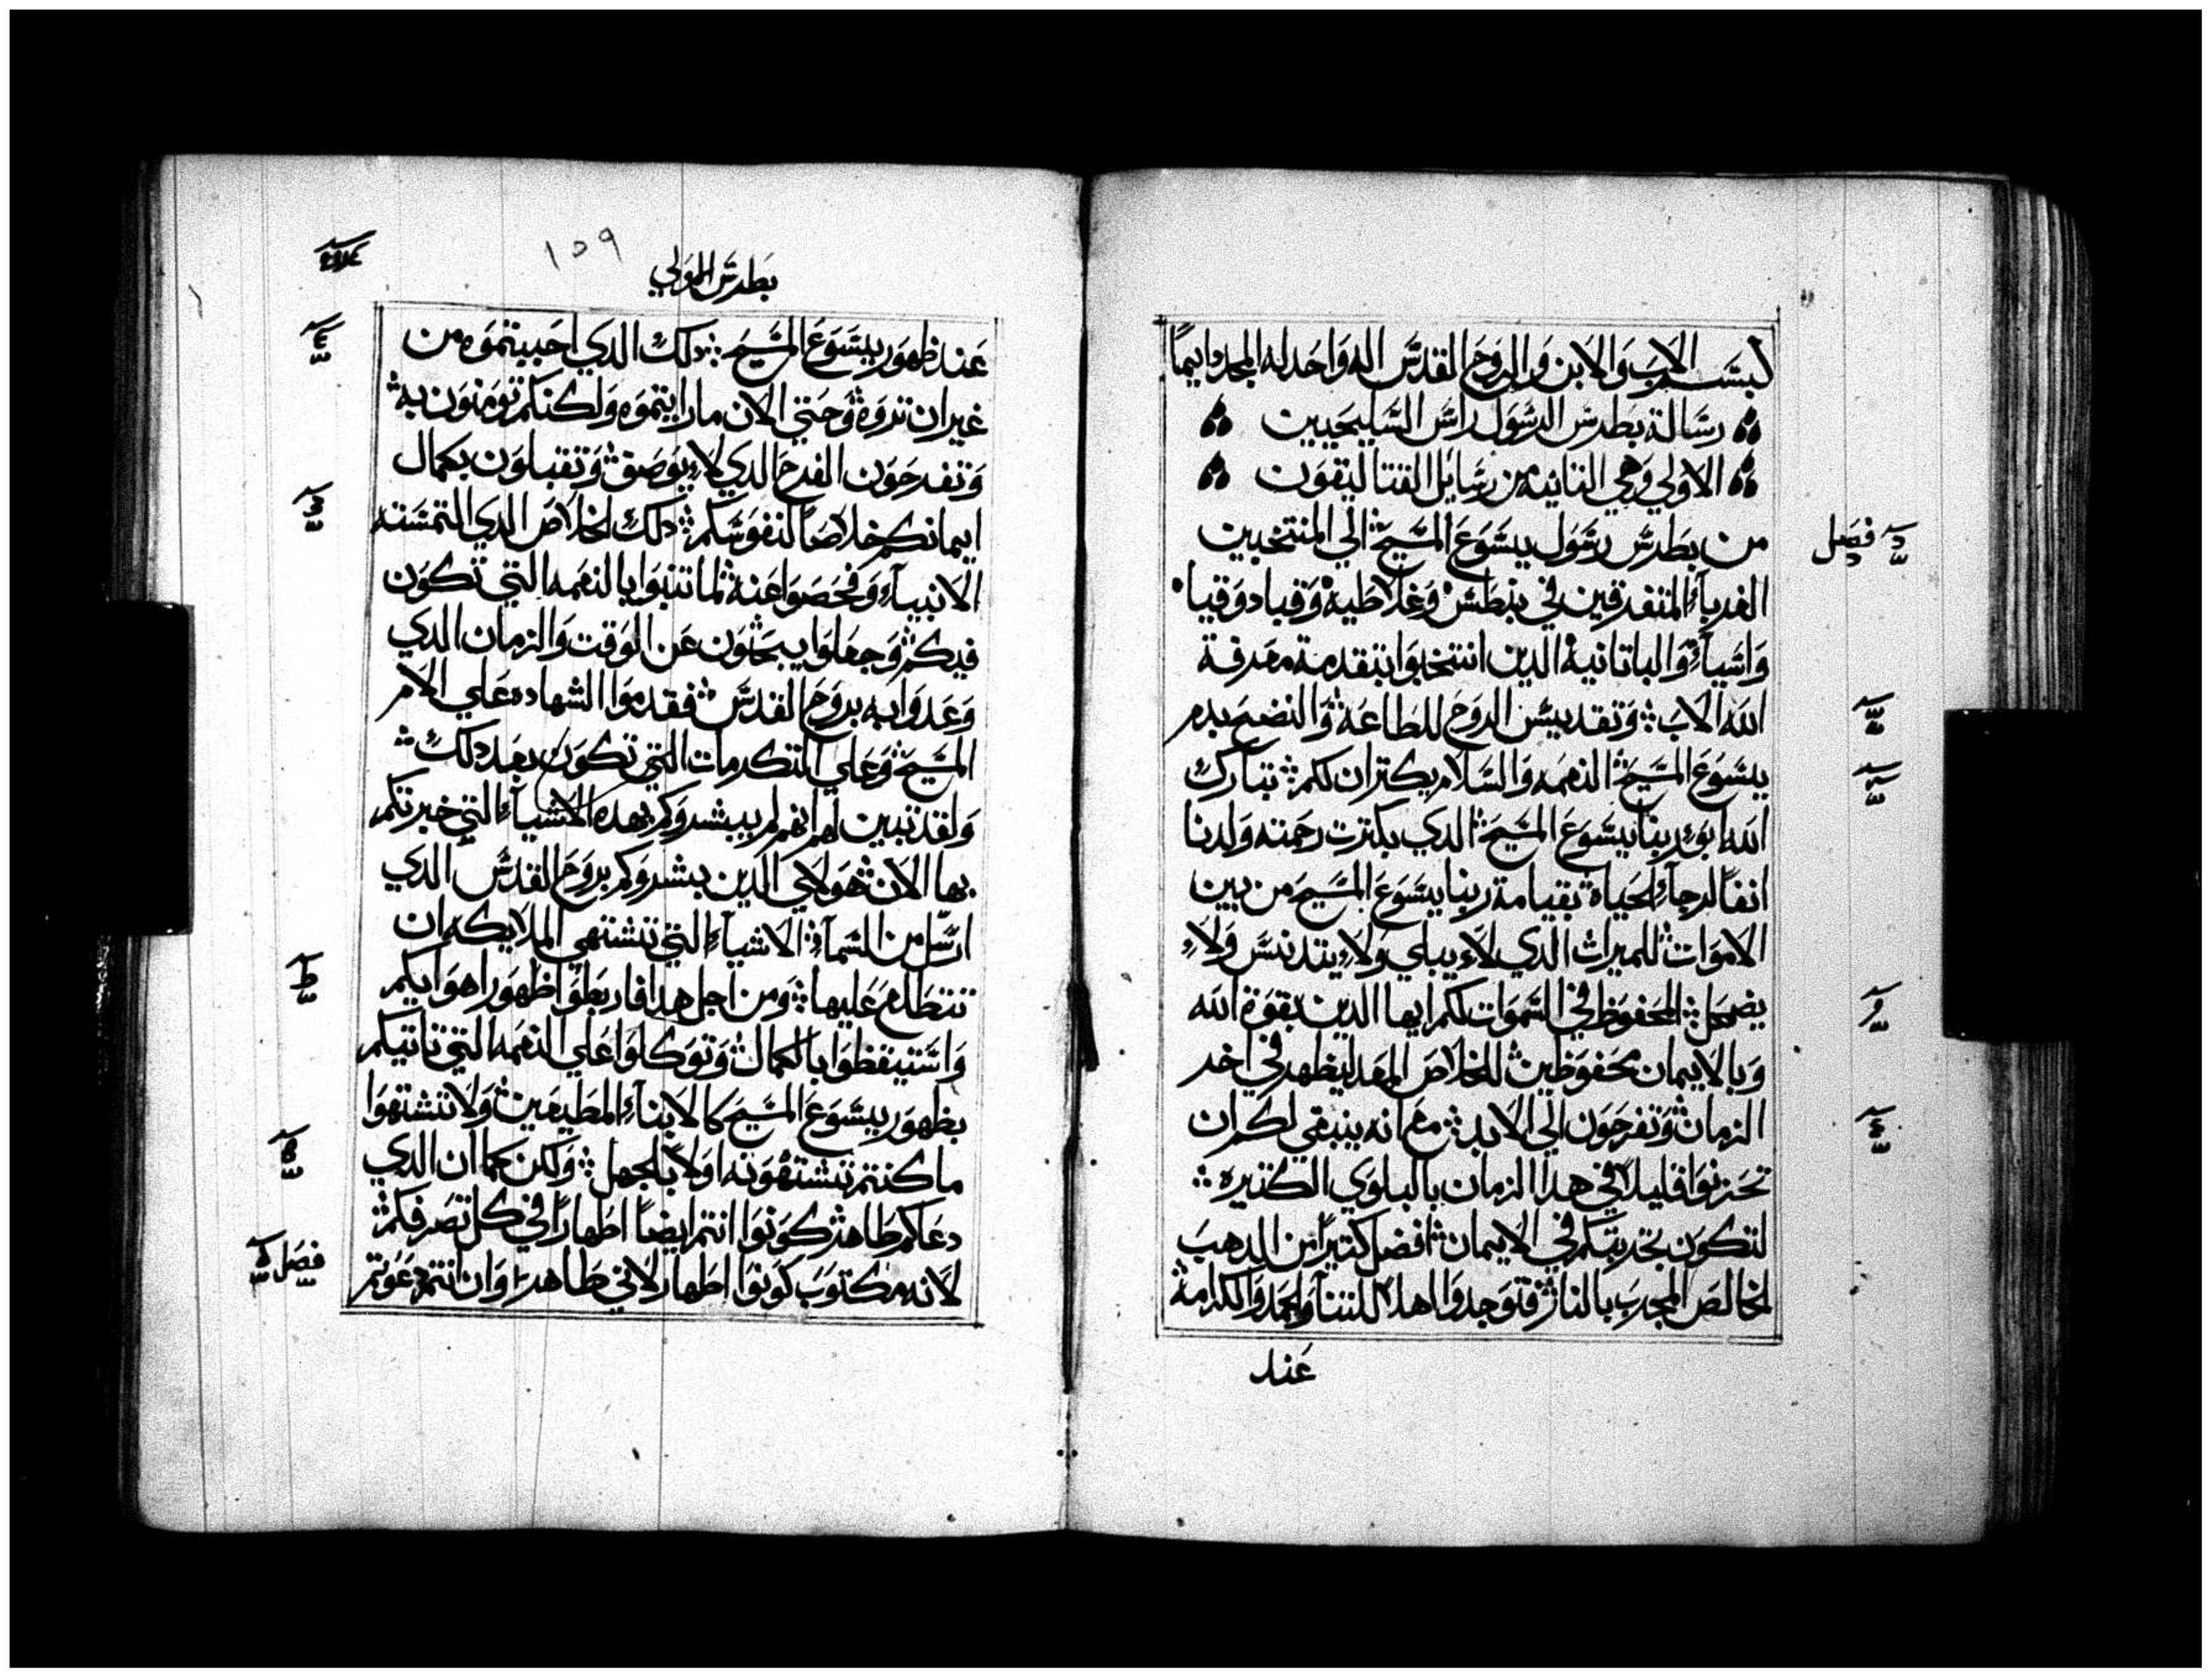 بسم الاب والابن والروح القدس اله واحد له المجد دايماً
رسالة بطرس الرسول راس السليحيين
الاولي وهي الثانيه من رسايل القتاليقون
فصل
من بطرس رسول يسوع المسيح الي المنتخبين
الغرباء المتفرقين في بنطس وغلاطيه وقبادوقيا
واسياء والباتانية الدين انتخبوا بتقدمة معرفة
الله الاب وتقديس الروح للطاعة والنضح بدم
يسوع المسيح النعمه والسلام يكتران لكم تبارك
الله ابو ربنا يسوع المسيح الدي بكترت رحمته ولدنا
انفاً لرجاء الحياة بقيامة ربنا يسوع المسيح من بين
الاموات للميرات الدي لاء يبلي ولاء يتدنس ولاء
يضمحل المحفوظ في السموات لكم ايها الدين بقوة الله
وبالايمان محفوظين للخلاص المعد ليظهر في اخر
الزمان وتفرحون الي الابد مع انه ينبغي لكم ان
تحزنوا قليلاً في هدا الزمان بالبلوي الكتيره
لتكون تجربتكم في الايمان افضل كتيراً من الدهب
الخالص المجرب بالنار فتوجدوا اهلا للتنا والحمد والكرامة
عند
١٥٩
بطرس الاولي
عند ظهور يسوع المسيح دلك الدي احببتموه من
غير ان تروه وحتي الان ما رايتموه ولكنكم تومنون به
وتفرحون الفرح الدي لاء يوصف وتقبلون بكمال
ايمانكم خلاصاً لنفوسكم دلك الخلاص الدي التمسته
الانبياء وفحصوا عنه لما تنبوا بالنعمه التي تكون
فيكم وجعلوا يبحتون عن الوقت والزمان الدي
وعدوا به بروح القدس فقدموا الشهاده علي الام
المسيح وعلي التكرمات التي تكون بعد دلك
ولقد تبين لهم انهم لم يبشروكم بهده الاشياء التي خبرتكم
بها الان هولاي الدين بشروكم بروح القدس الدي
ارسل من السماء الاشياء التي تشتهي الملايكه ان
تتطلع عليها ومن اجل هدا فاربطوا ظهور اهوايكم
واستيقظوا بالكمال وتوكلوا علي النعمه التي تاتيكم
بظهور يسوع المسيح كالابناء المطيعين ولا تشتهوا
ما كنتم تشتهونه اولاً بالجهل ولكن كما ان الدي
دعاكم طاهر كونوا انتم ايضاً اطهاراً في كل تصرفكم
فصل
لانه مكتوب كونوا اطهار لاني طاهر وان انتم دعوتم